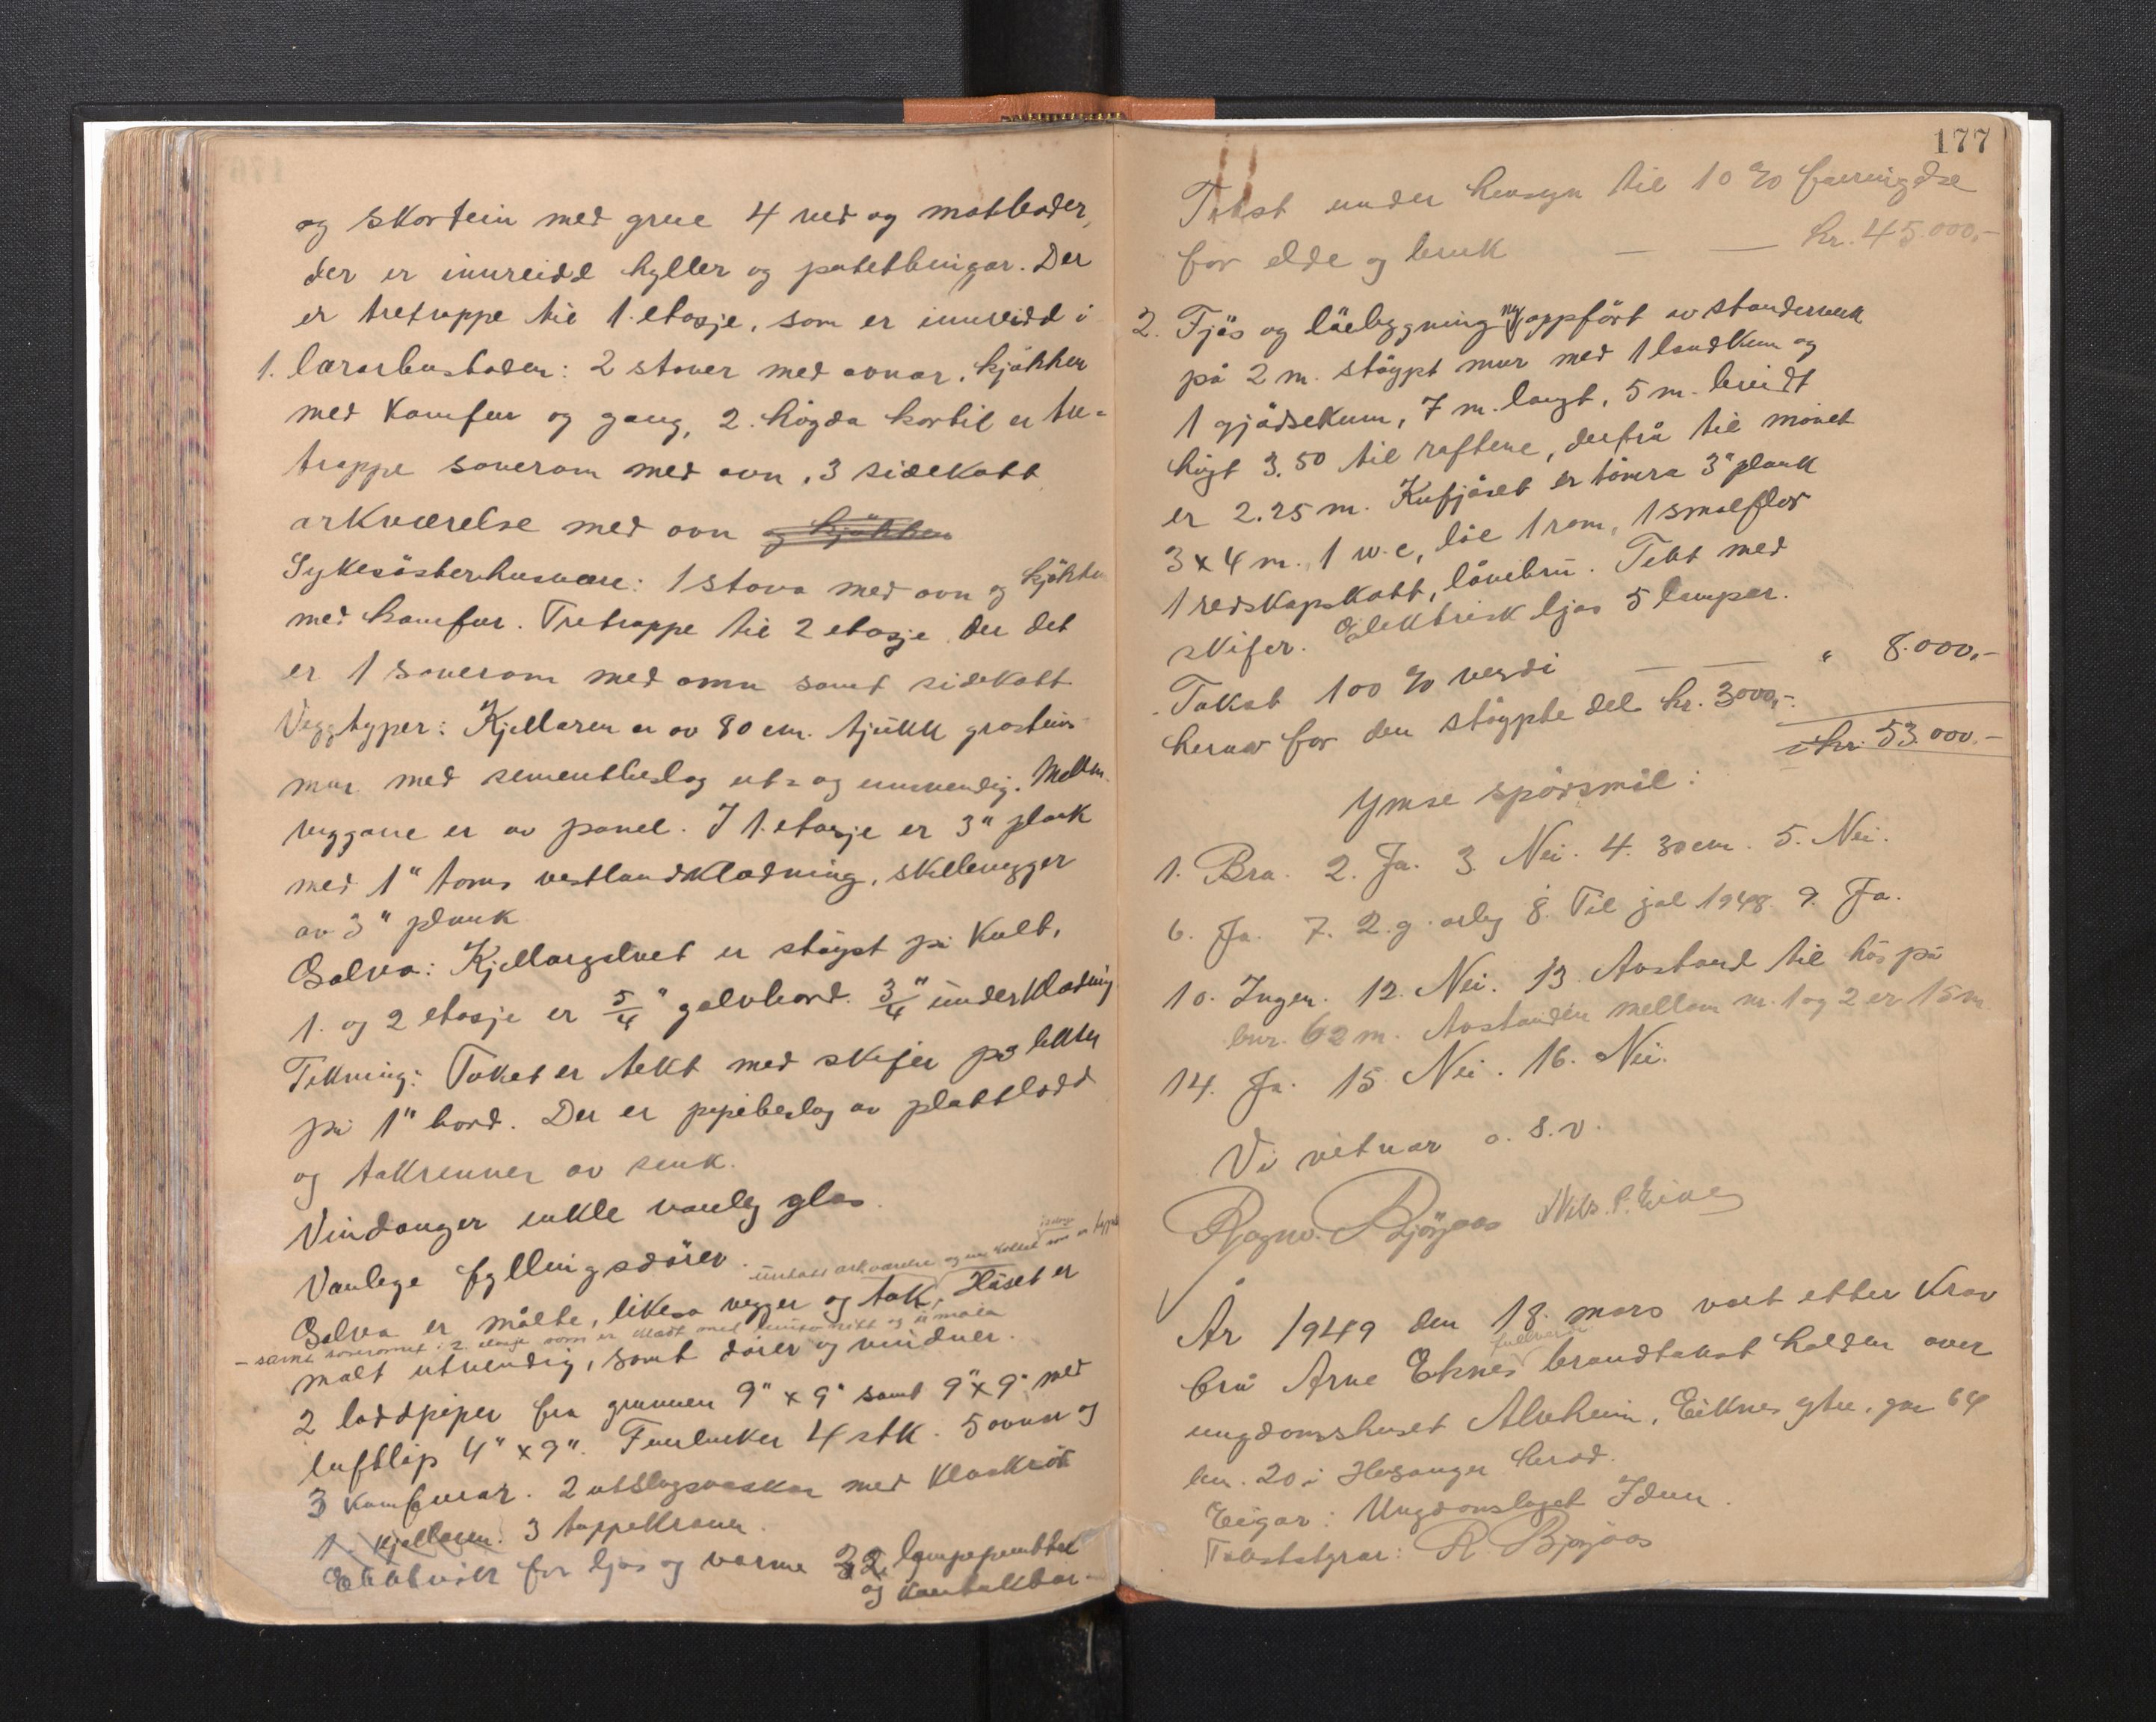 og skorstein med grue 4 ved og matboder,
der er innreidd hyller og potetbingar. Der
er tretrappe til 1. etasje, som er innreidd i
1. lærarbustaden: 2 stover med ovnar, kjøkken
med komfur og gang, 2. høgda hortil er tre-
trappe soverom med ovn, 3 sidekott
arkværelse med ovn og kjøkken
Sykesøsterhusvære: 1 stova med ovn og kjøkken
med komfur. Tretrappe til 2 etasje der det
er 1 soverom med omn samt sidekott
Veggtyper: Kjellaren er av 80 cm. tjukk gråstein
mur med sementbeslag ut- og innvendig. Mellom
veggane er av panel. I 1. etasje er 3" plank
med 1" toms vestlandskladning, skillevegger
av 3" plank
Golva: Kjellargolvet er støypt på kult,
1. og 2 etasje er 5/4" golvbord. 3/4" underkladning
Tekning: Taket er tekt med skifer på lekter
på 1" bord. Der er pipebeslag av plattlodd
og takrenner av sink.
Vindauger enkle vanleg glas.
Vanlege fyllingsdører.
untatt arkværelse og en kottet i 2 etasje som er
Golva er målte, likeso vegger og tak, Huset er
- samt soveromet i 2. etasje som er kledt med og umåla
malt utvendig, samt dører og vinduer.
2 loddpiper fra grunnen 9" x 9" samt 9" x 9" med
luftløp 4" x 9". Feierluker 4 stk. 5 ovnar og
3 komfurar. 2 utslagsvaskar med kloakkrør
1 kjellaren. 3 tappekraner.
Elektrisk for ljos og varme 32 lampepunkter
og kontaktar.
177
Takst under hensyn til 10 % forringelse
for elde og bruk — — kr. 45.000,-
2. Fjøs og løebygning ny oppført av standerverk
på 2 m. støypt mur med 1 landkum og
1 gjødsekum, 7 m. langt, 5 m. breidt
høgt 3.50 til raftene, derfrå til mønet
er 2.25 m. Kufjøset er tømra 3" plank
3 x 4 m. 1 w.c, løe 1 rom, 1 smalflor
1 redskapskott, låvebru. Tekt med
skifer. Elektrisk ljos 5 lamper.
Takst 100 % verdi — — " 8.000,-
herav for den støypte del kr. 3000,-.
kr. 53.000.-
Ymse spørsmål:
1. Bra. 2. Ja. 3. Nei. 4. 30 cm. 5. Nei.
6. Ja. 7. 2. g. årleg 8. Til jol 1948. 9. Ja.
10. Ingen. 12. Nei. 13. Avstand til hus på
bnr. 62 m. Avstanden mellom nr. 1 og 2 er 15 m.
14. Ja. 15. Nei. 16. Nei.
Vi vitnar o.s.v.
Ragnv. Bjørgaas Nils P. Eikne
År 1949 den 18. mars vart etter krav
fullverdi
frå Arne Eknes brandtakst halden over
ungdomshuset Alvheim, Eiknes ytre, gnr 64
bnr. 20 i Hosanger herad.
Eigar: Ungdomslaget Idun.
Takststyrar: R. Bjørgaas